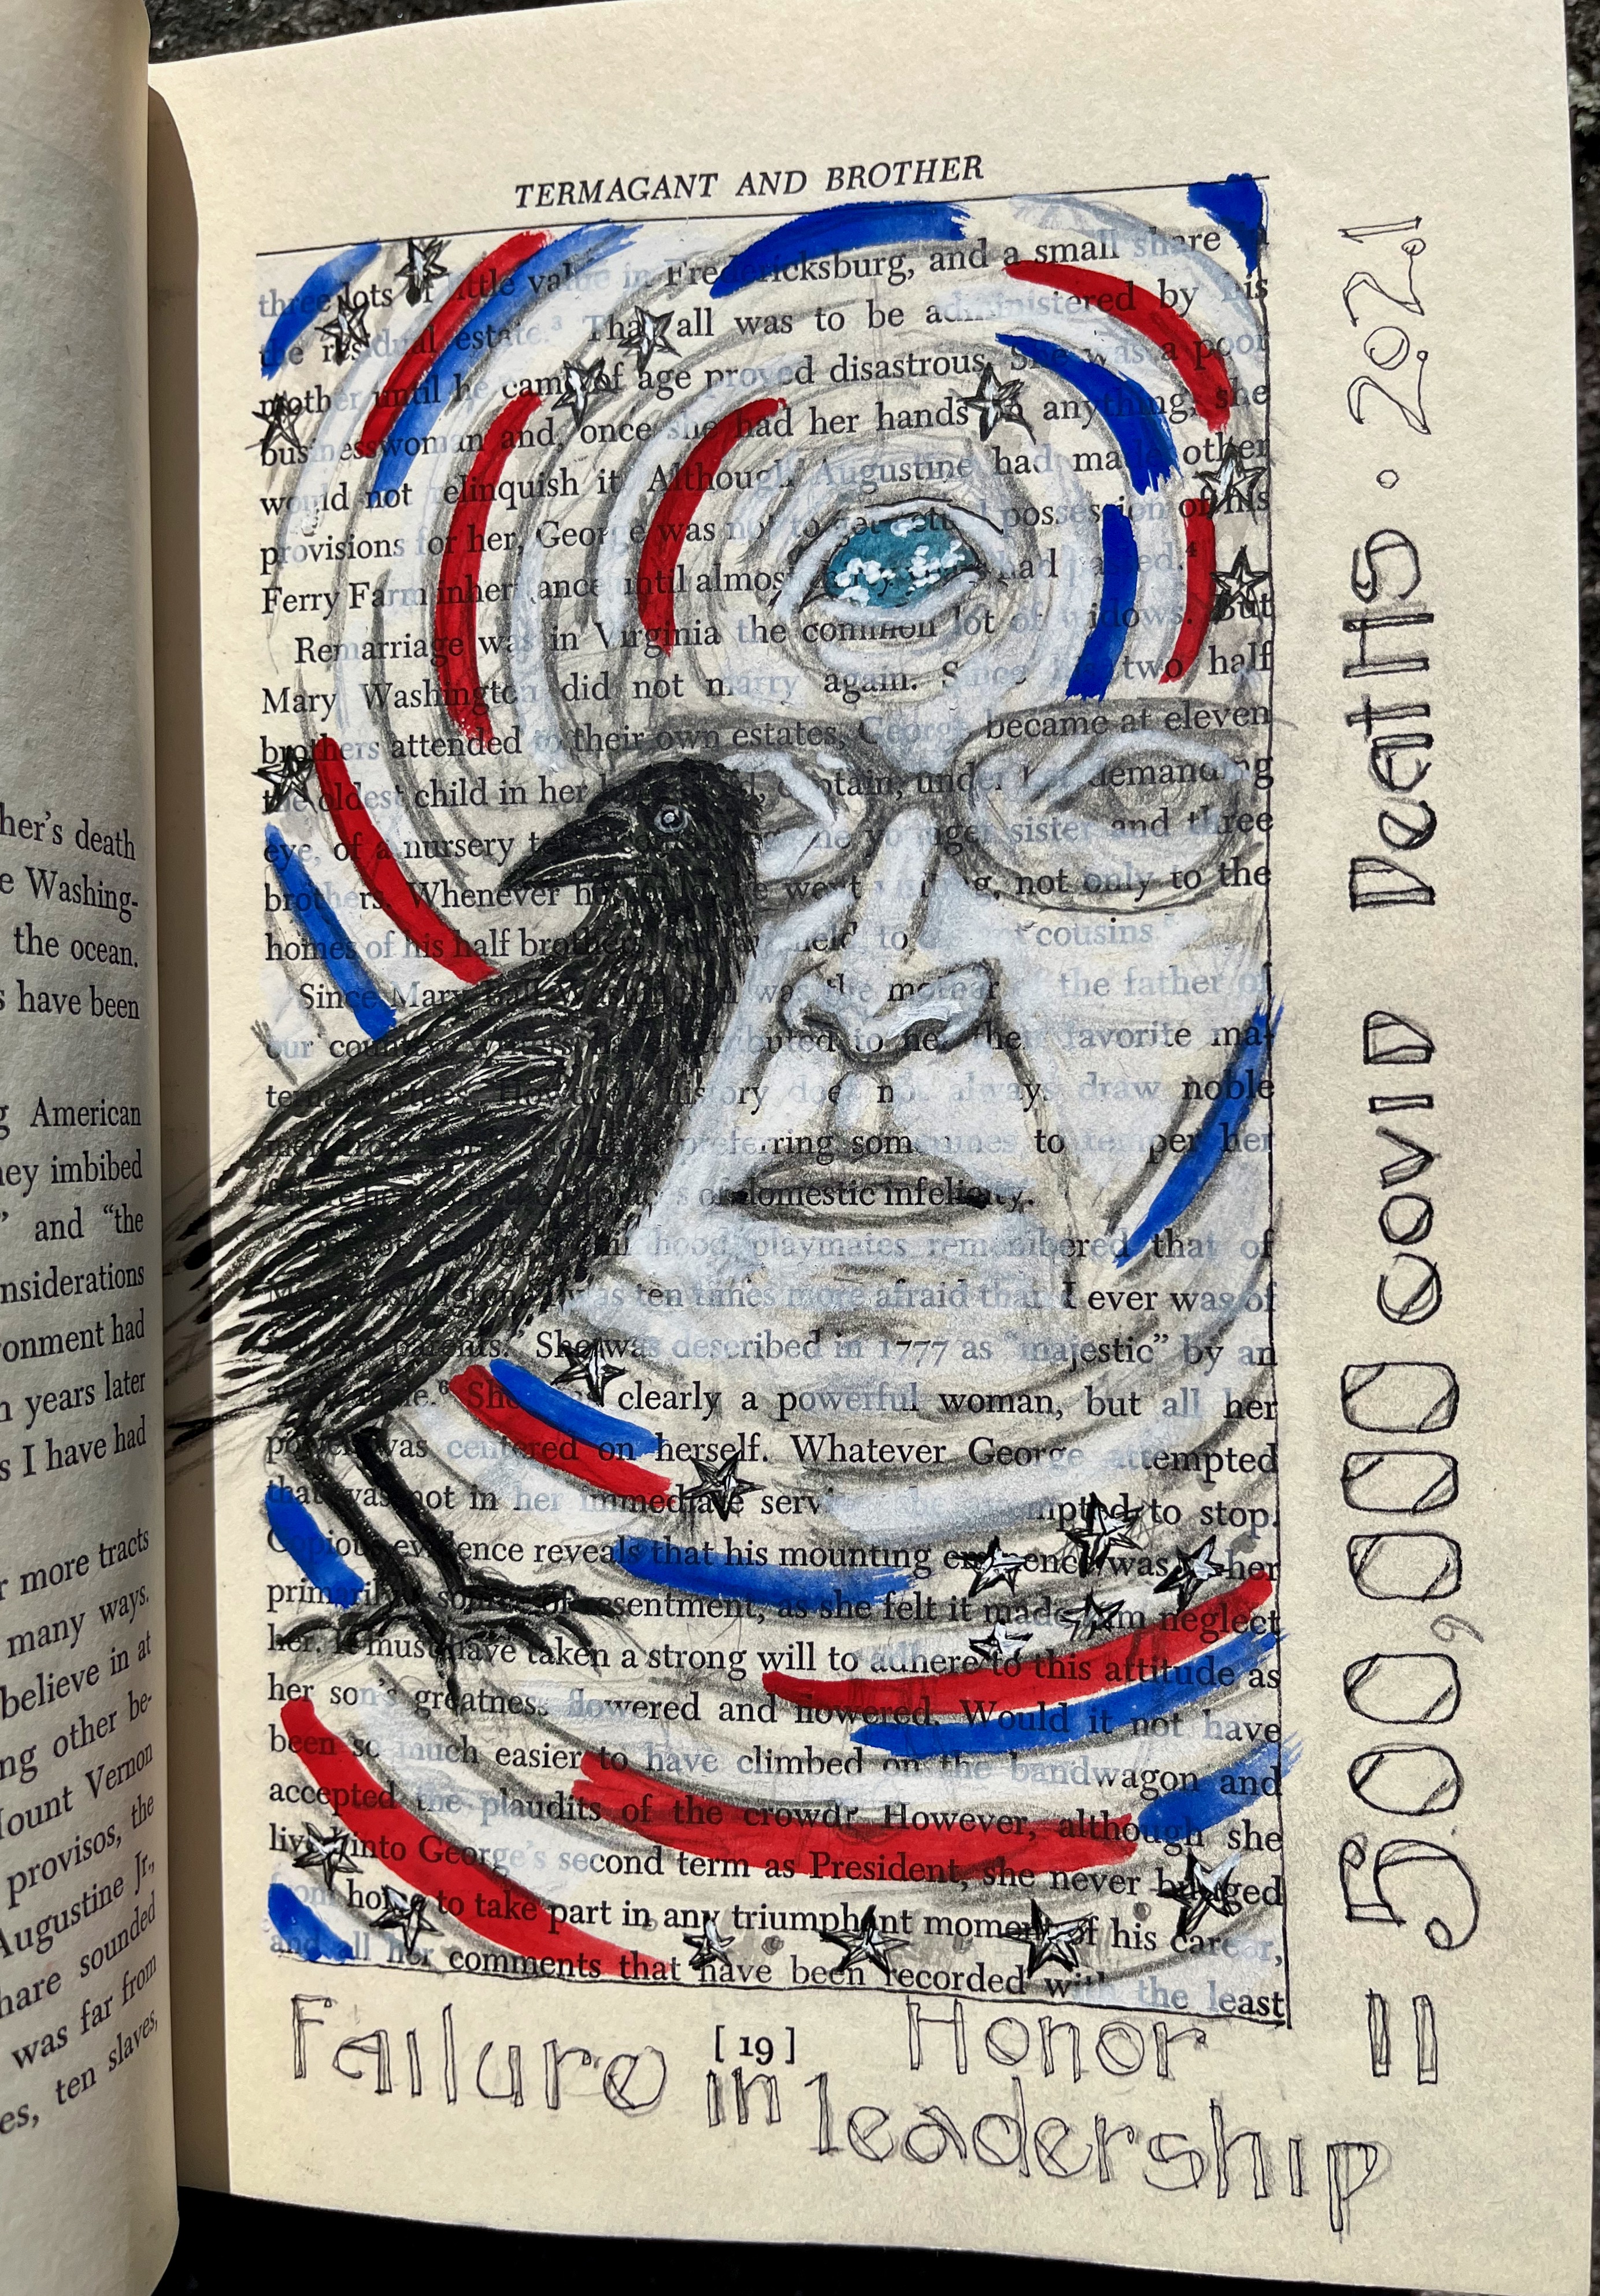 her's death
e Washing-
the ocean.
s have been
g American
ey imbibed
" and "the
nsiderations
onment had
n years later
s I have had
r more tracts
many ways.
believe in at
ng other be-
ount Vernon
provisos, the
Augustine Jr.,
hare sounded
was far from
ten slaves,
TERMAGANT AND BROTHER
three lots of little value in Fredericksburg, and a small share
the residual estate.³ That all was to be administered by his
mother until he came of age proved disastrous. She was a poor
businesswoman and, once she had her hands on anything, she
would not relinquish it. Although Augustine had made other
provisions for her, George was not to get possession of his
Ferry Farm inheritance until almost had passed.⁴
Remarriage was in Virginia the common lot of widows. But
Mary Washington did not marry again. Since his two half
brothers attended to their own estates, George became at eleven
the oldest child in her captain, under her demanding
eye, of a nursery younger sister and three
brothers. Whenever he went visiting, not only to the
homes of his half brothers, to cousins
Since Mary Ball Washington was the mother the father of
our country, attributed to her the favorite ma-
ternal virtues. However, history does not always draw noble
preferring sometimes to temper her
of domestic infelicity.
One of George's childhood playmates remembered that of
was ten times more afraid than I ever was of
my own parents." She was described in 1777 as "majestic" by an
⁶ She was clearly a powerful woman, but all her
power was centered on herself. Whatever George attempted
that was not in her immediate service attempted to stop.
Copious evidence reveals that his mounting eminence was to her
primarily a source of resentment, as she felt it made him neglect
her. It must have taken a strong will to adhere to this attitude as
her son's greatness flowered and flowered. Would it not have
been so much easier to have climbed on the bandwagon and
accepted the plaudits of the crowd? However, although she
lived into George's second term as President, she never budged
from home to take part in any triumphant moment of his career,
and all her comments that have been recorded with the least
[ 19 ]
Failure in Honor
leadership
= 500,000 COVID DeatHs. 2021